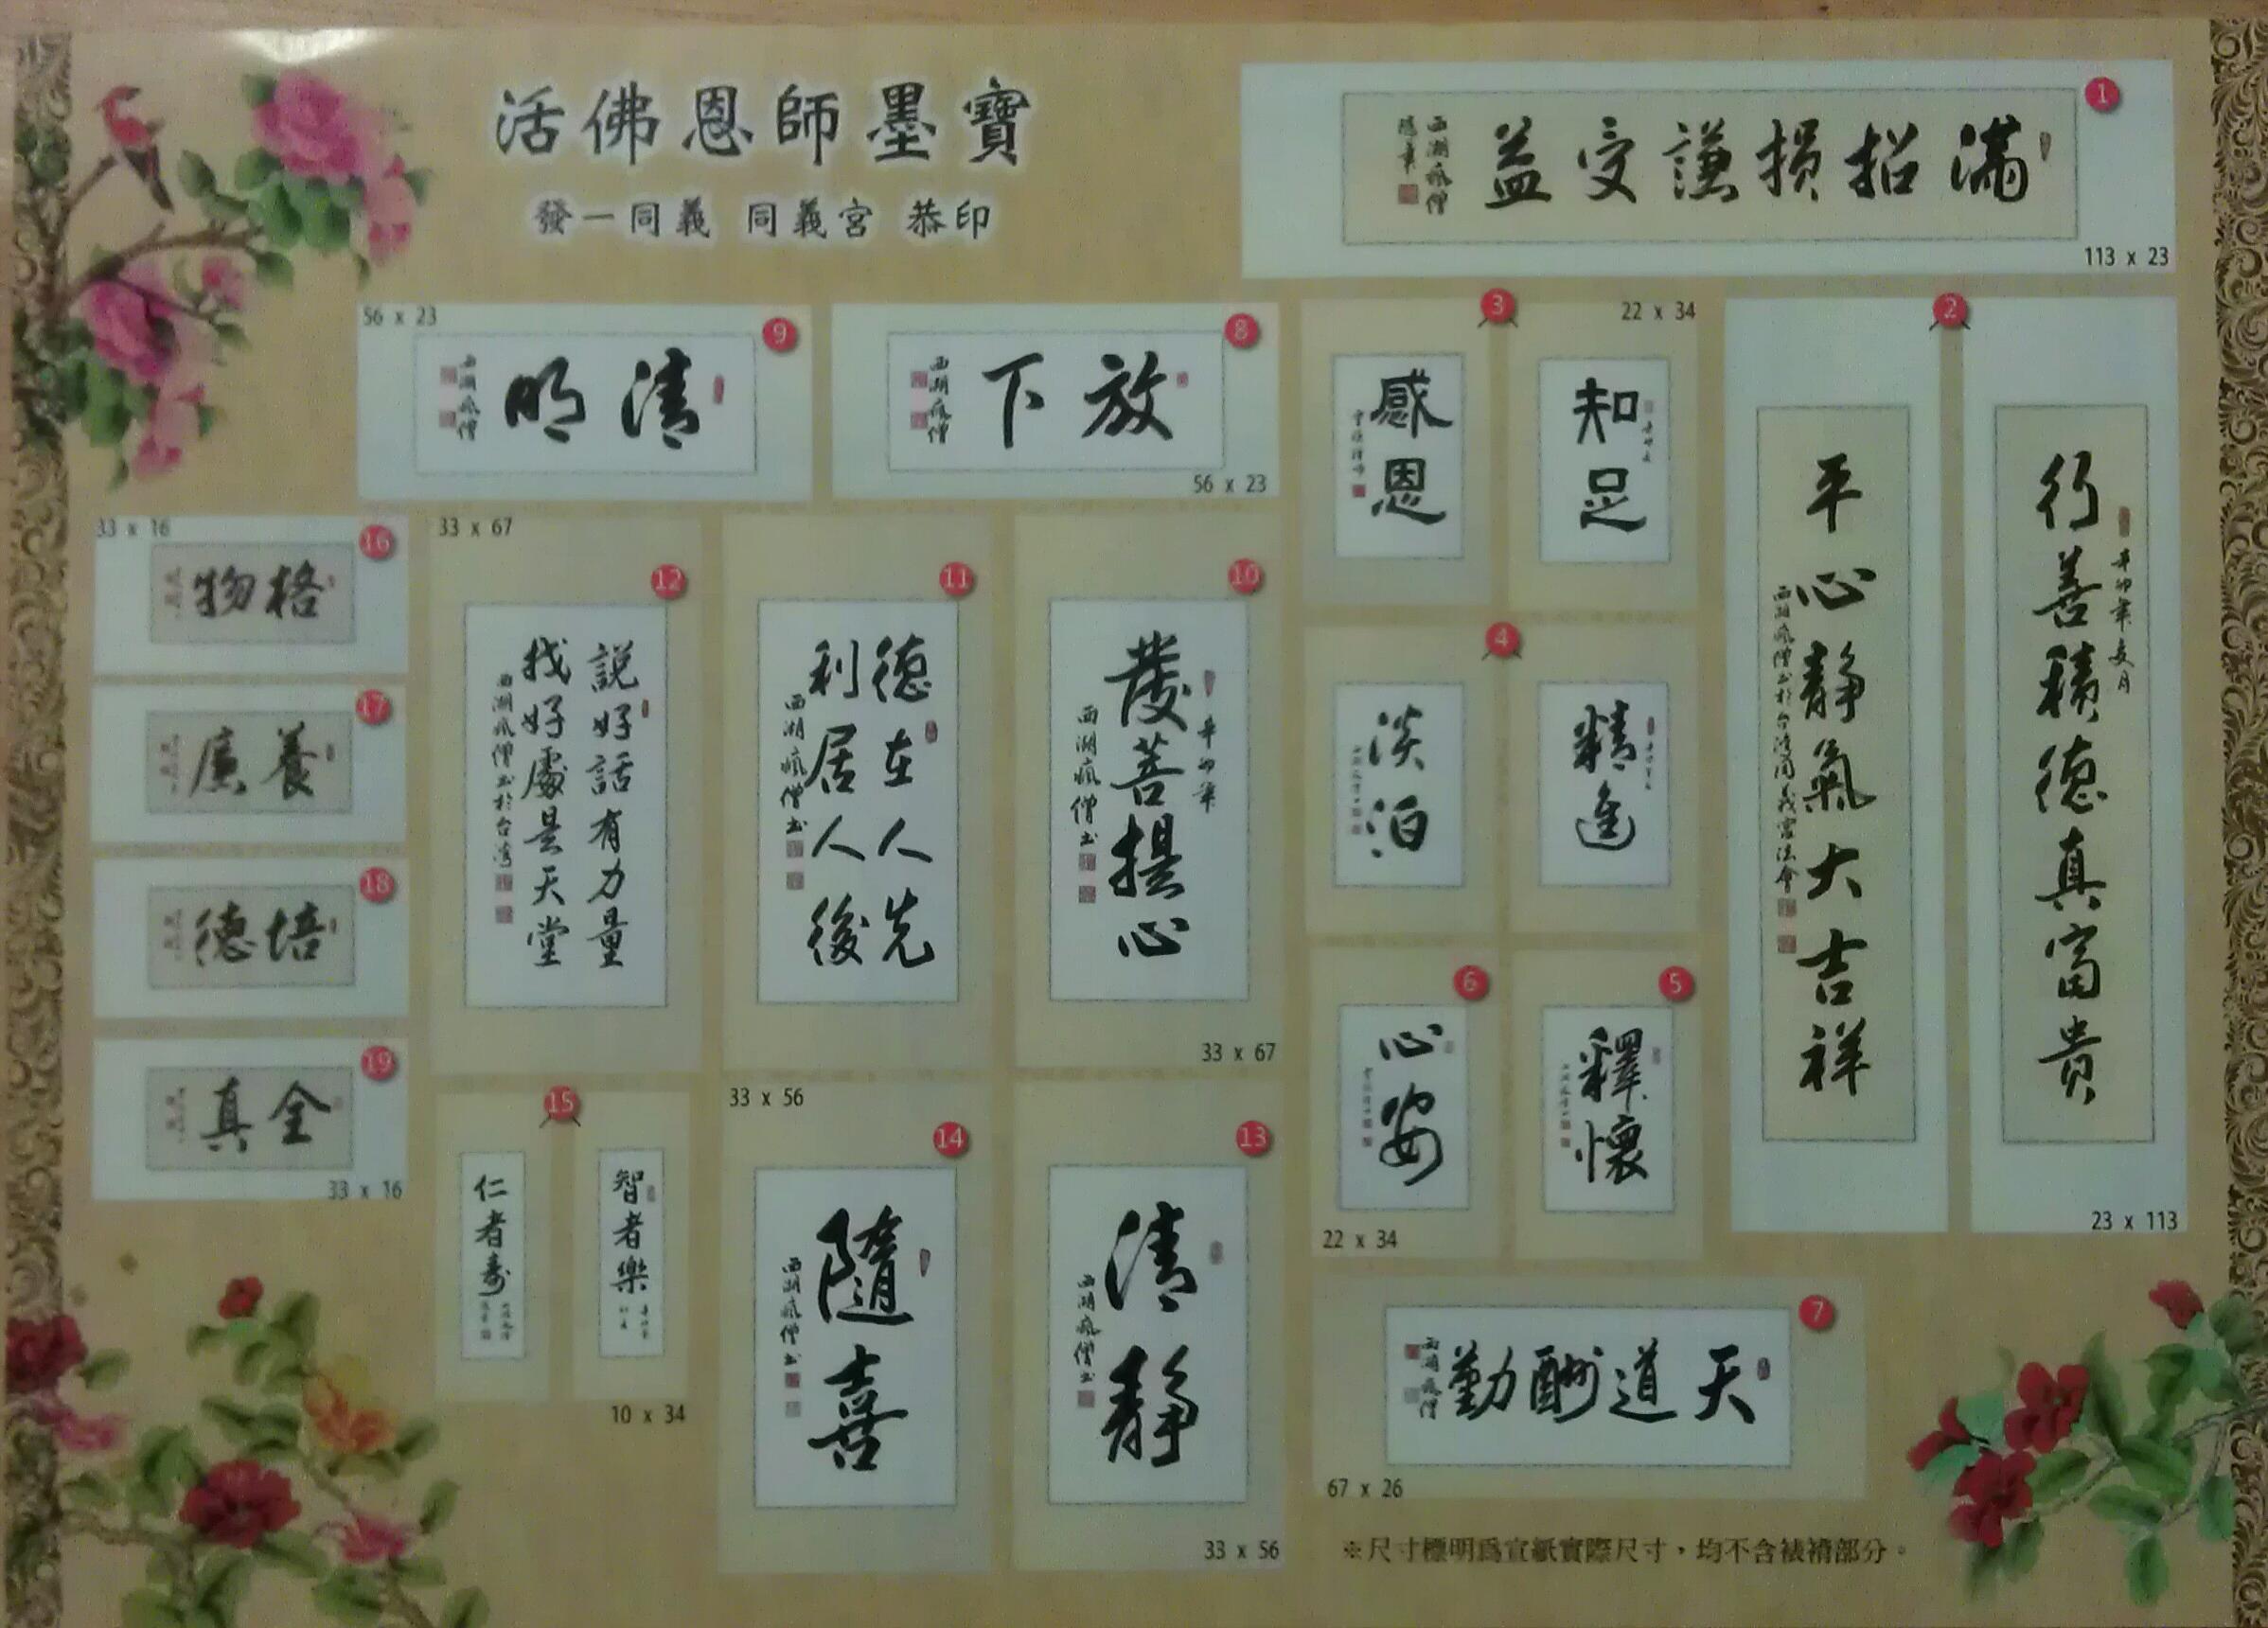 活佛恩師墨寶
發一同義 同義宮 恭印
1
滿招損謙受益
西湖瘋僧
隱章
113 x 23
2
行善積德真富貴
辛卯年亥月
平心靜氣大吉祥
西湖瘋僧書於台灣同義宮法會
23 x 113
3
22 x 34
知足
感恩
4
精進
淡泊
5
釋懷
6
心安
22 x 34
7
天道酬勤
西湖瘋僧
67 x 26
8
放下
西湖瘋僧
56 x 23
9
56 x 23
清明
西湖瘋僧
10
發菩提心
辛卯年
西湖瘋僧書
33 x 67
11
德在人先
利居人後
西湖瘋僧書
12
33 x 67
說好話有力量
找好處是天堂
西湖瘋僧書於台灣
13
清靜
西湖瘋僧書
33 x 56
14
33 x 56
隨喜
西湖瘋僧書
15
智者樂
仁者壽
10 x 34
16
33 x 16
格物
17
養廉
18
培德
19
全真
33 x 16
※尺寸標明為宣紙實際尺寸，均不含裱褙部分。